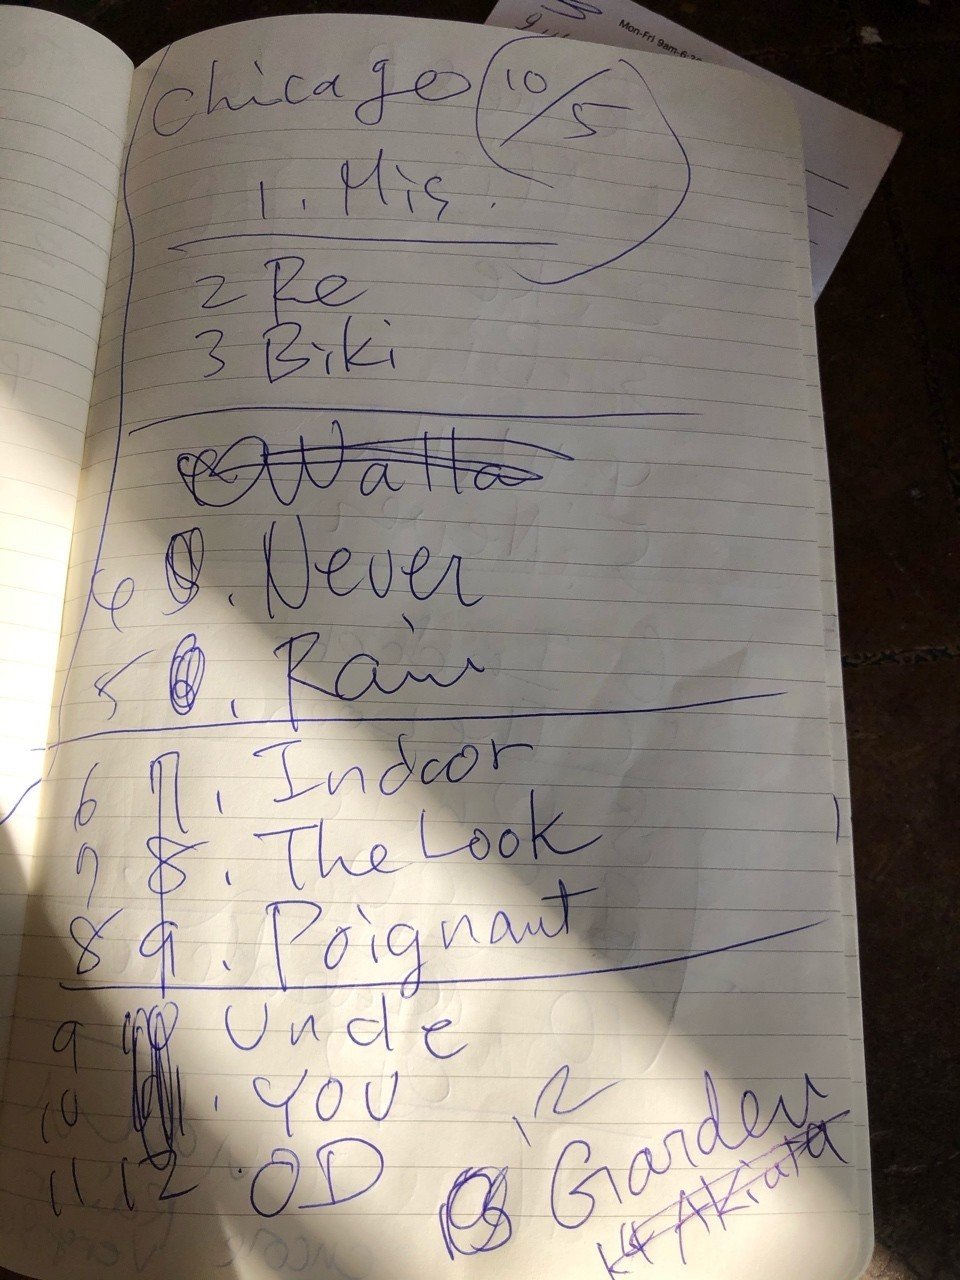 Mon-Fri 9am-6:30
Chicago 10/5
1. Mis.
2 Re
3 Biki
Walla
4 . Never
5 6. Rain
6 7. Indoor
7 8. The Look
8 9. Poignant
9 Unde
10 . YOU
11 12. OD
12 Garden
14 Akiata